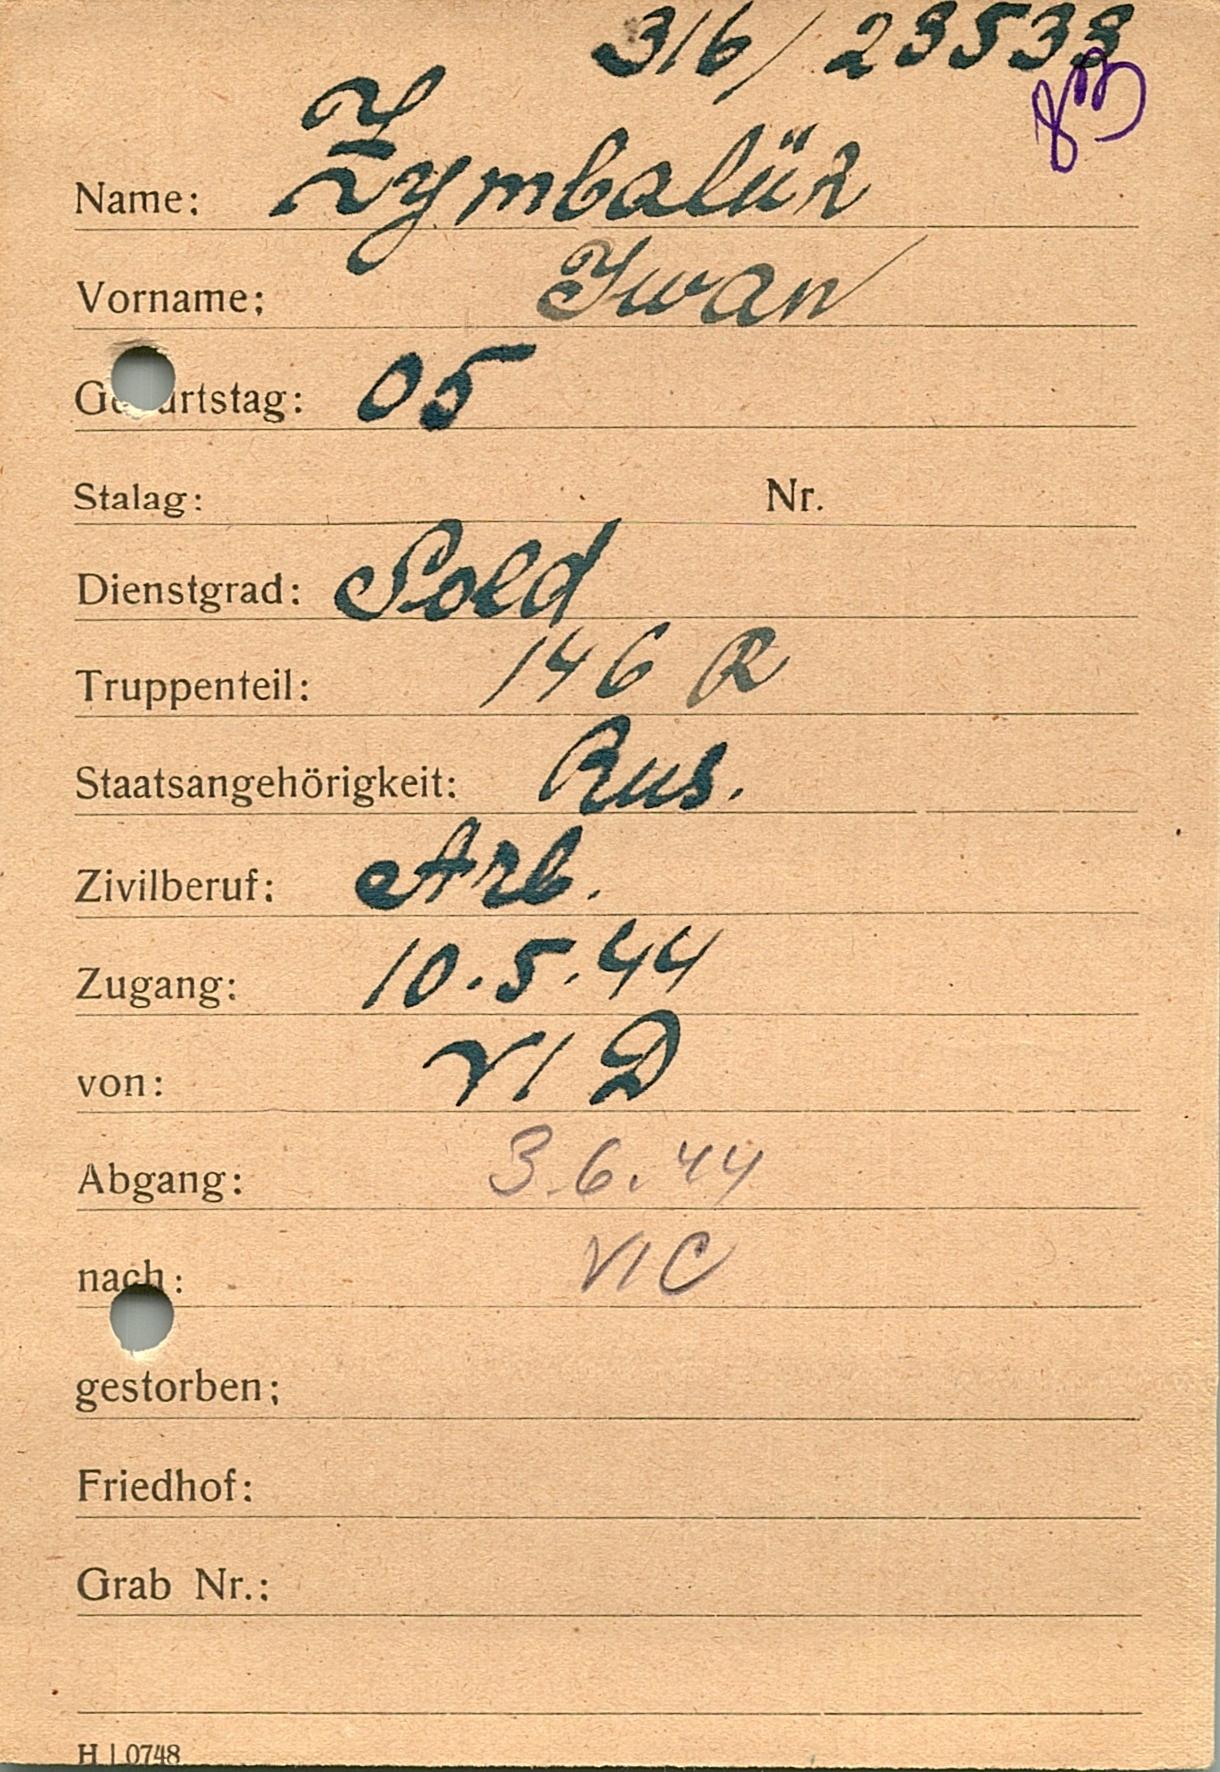 316/23533
Name: Zymbalük
Vorname: Iwan
Geburtstag: 05
Stalag: Nr.
Dienstgrad: Sold
Truppenteil: 146 R
Staatsangehörigkeit: Rus.
Zivilberuf: Arb.
Zugang: 10.5.44
von: VI D
Abgang: 3.6.44
nach: VI C
gestorben:
Friedhof:
Grab Nr.:
H | 0748